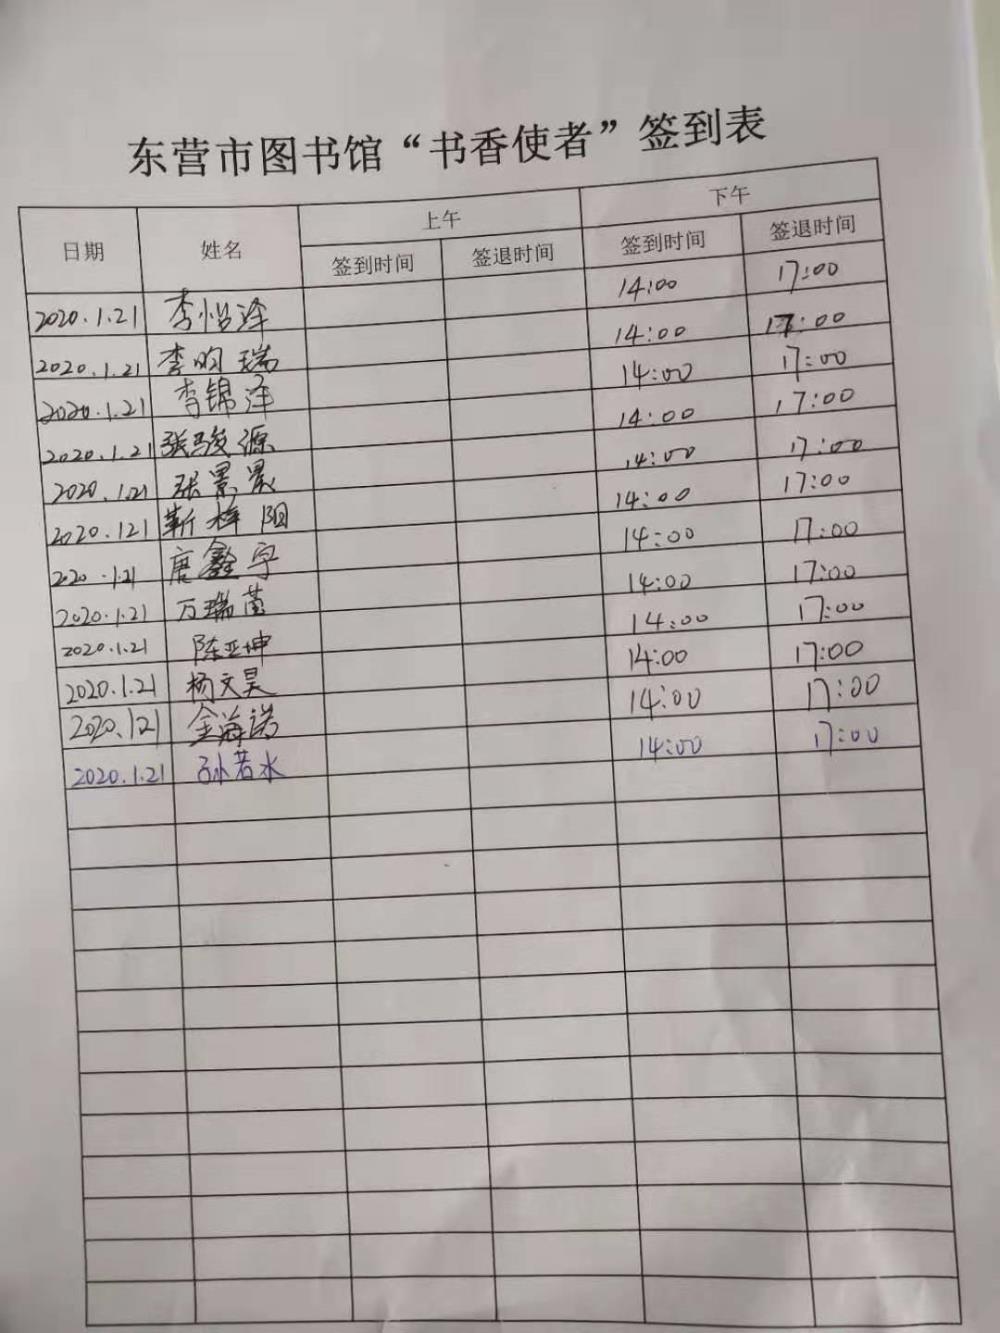 东营市图书馆“书香使者”签到表
日期 姓名 上午 下午
签到时间 签退时间 签到时间 签退时间
2020.1.21 李怡泽 14:00 17:00
2020.1.21 李昀瑞 14:00 17:00
2020.1.21 李锦泽 14:00 17:00
2020.1.21 张骏源 14:00 17:00
2020.1.21 张景晨 14:00 17:00
2020.121 靳梓阳 14:00 17:00
2020.1.21 唐鑫宇 14:00 17:00
2020.1.21 万瑞 14:00 17:00
2020.1.21 陈亚坤 14:00 17:00
2020.1.21 杨文昊 14:00 17:00
2020.121 金海诺 14:00 17:00
2020.1.21 孙若水 14:00 17:00